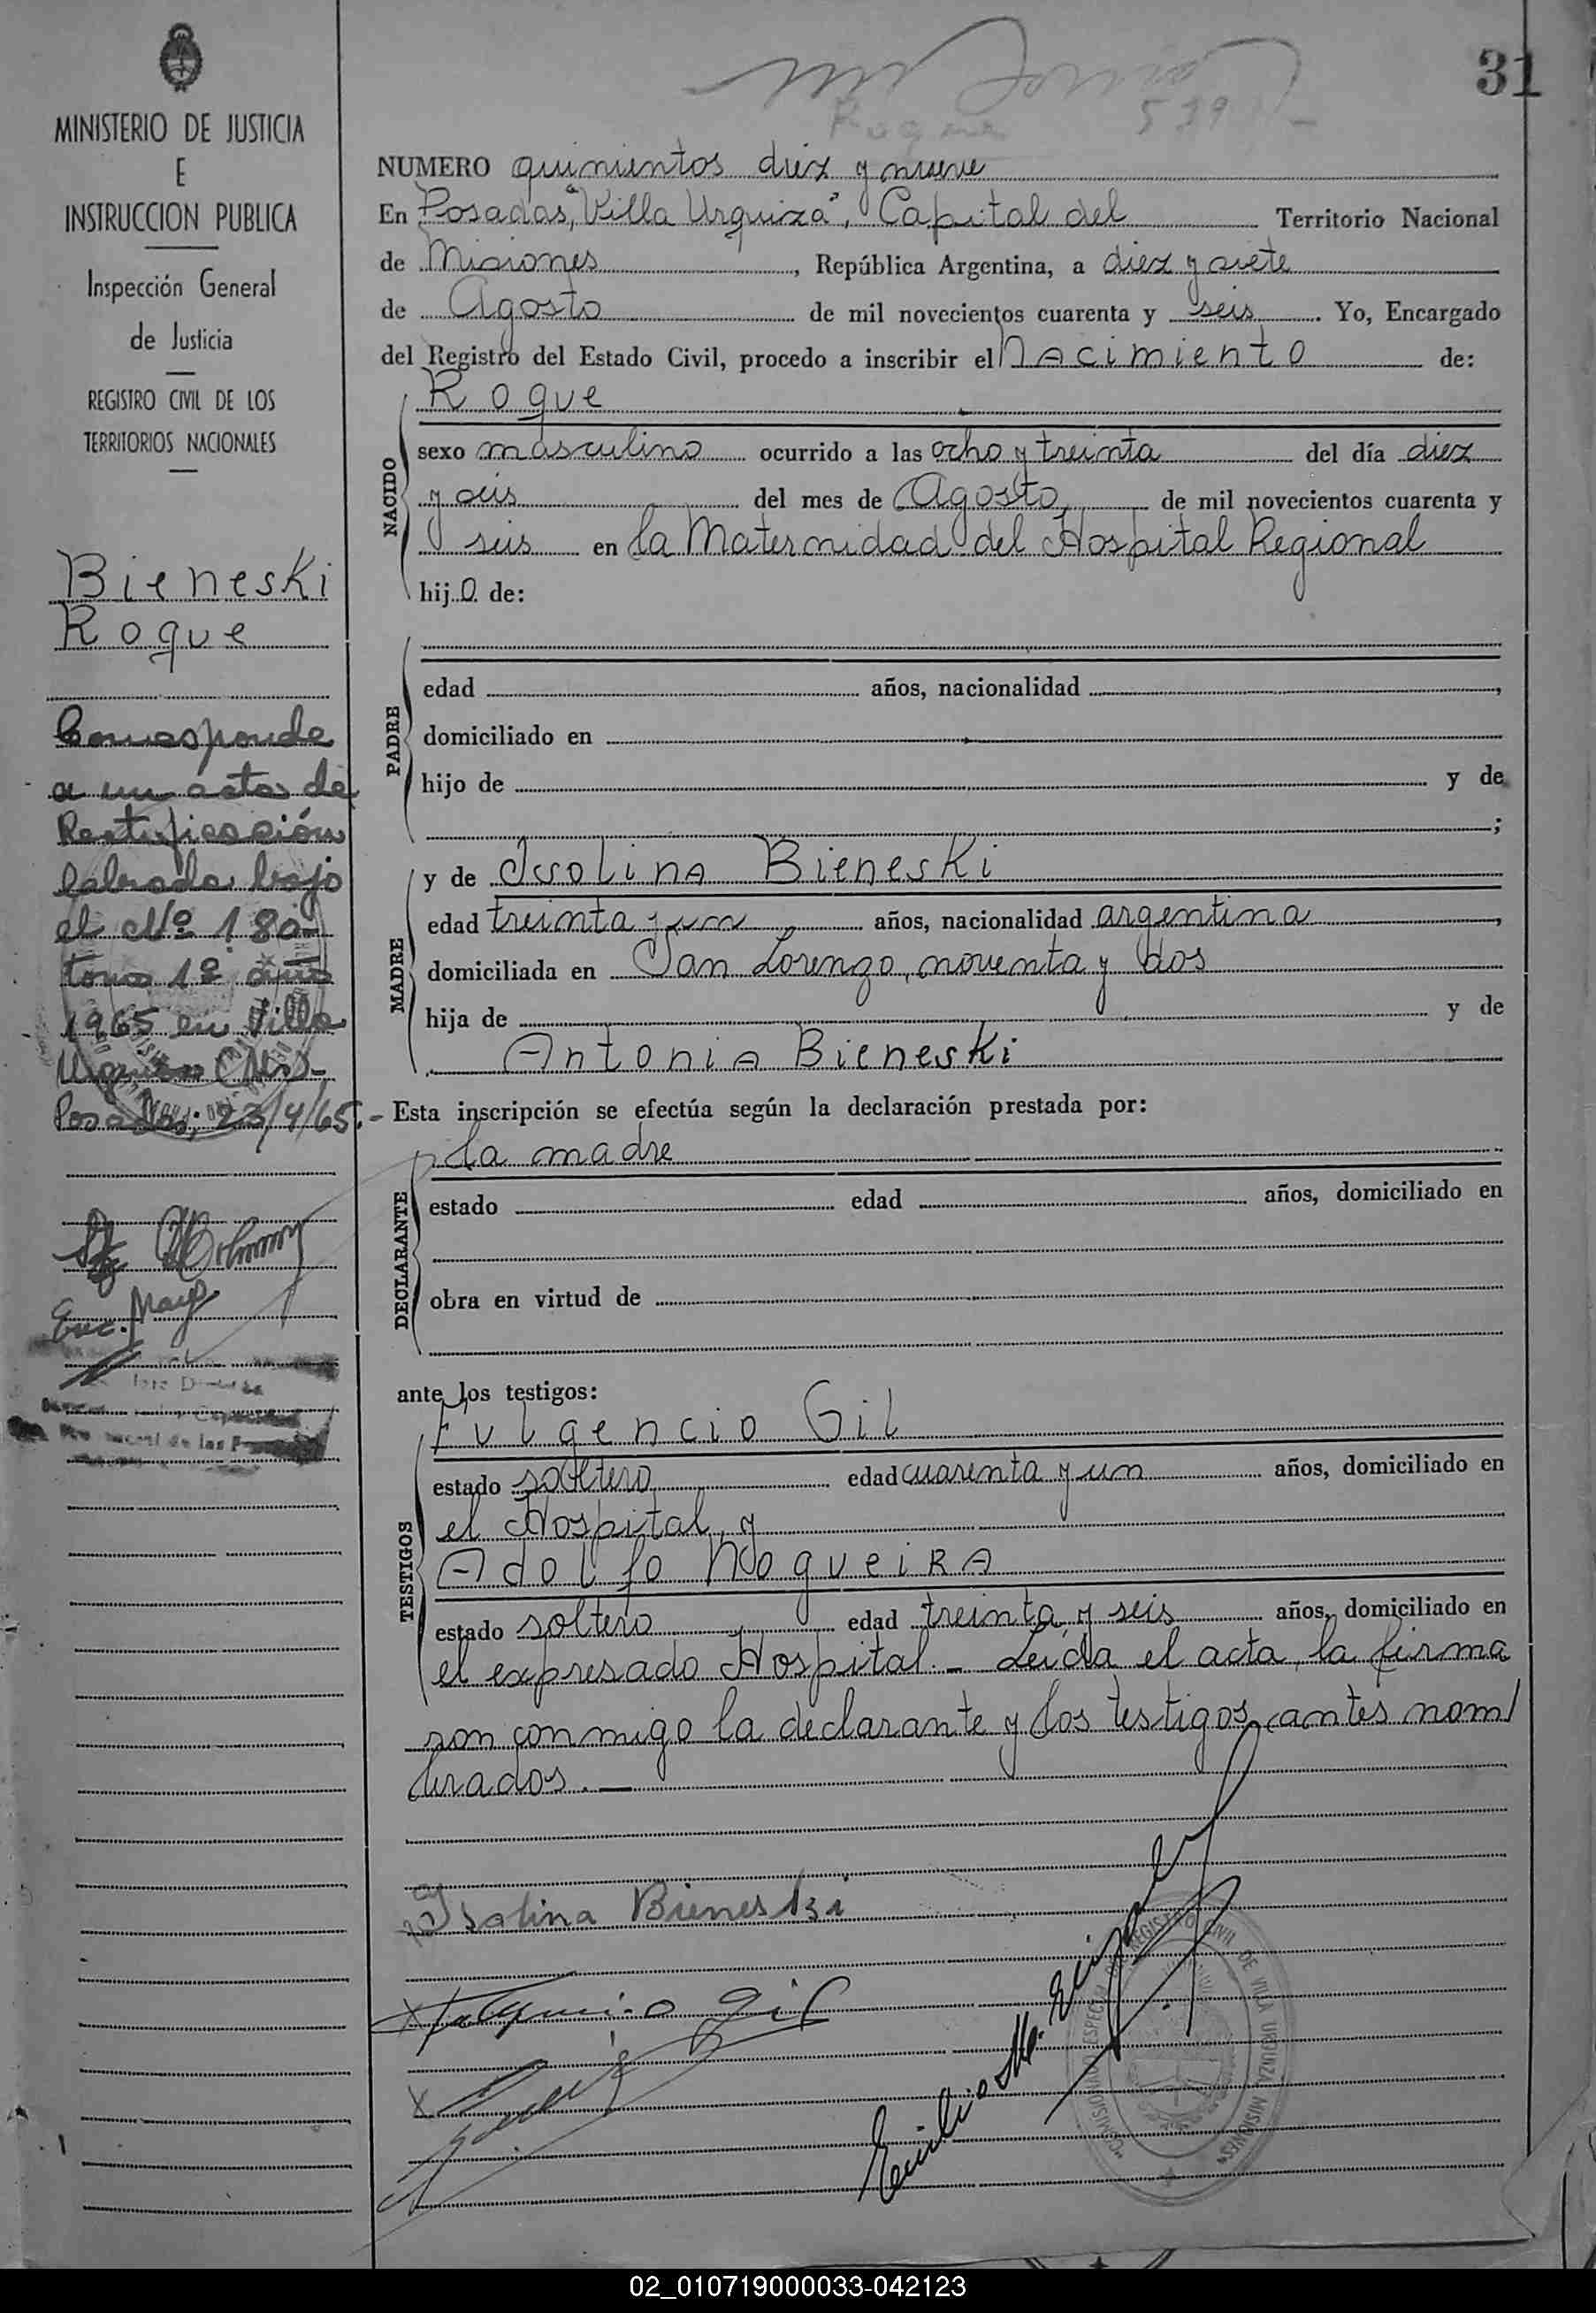 31
MINISTERIO DE JUSTICIA
E
INSTRUCCION PUBLICA
Inspección General
de Justicia
REGISTRO CIVIL DE LOS
TERRITORIOS NACIONALES
Bieneski
Roque
Corresponde
a un acta de
Rectificación
labrada bajo
el Nº 180
tomo 1º año
1965 en Villa
Urquiza Mns.-
Posadas, 23/4/65.-
Enc. Mayo
NUMERO quinientos diez y nueve
En Posadas, "Villa Urquiza", Capital del Territorio Nacional
de Misiones, República Argentina, a diez y siete
de Agosto de mil novecientos cuarenta y seis. Yo, Encargado
del Registro del Estado Civil, procedo a inscribir el Nacimiento de:
NACIDO
Roque
sexo masculino ocurrido a las ocho y treinta del día diez
y seis del mes de Agosto, de mil novecientos cuarenta y
seis en la Maternidad del Hospital Regional
hijo de:
PADRE
edad años, nacionalidad ,
domiciliado en
hijo de y de
;
MADRE
y de Isolina Bieneski
edad treinta y un años, nacionalidad argentina,
domiciliada en San Lorenzo, noventa y dos
hija de y de
Antonia Bieneski
Esta inscripción se efectúa según la declaración prestada por:
DECLARANTE
la madre
estado edad años, domiciliado en
obra en virtud de
ante los testigos:
TESTIGOS
Fulgencio Gil
estado soltero edad cuarenta y un años, domiciliado en
el Hospital, y
Adolfo Nogueira
estado soltero edad treinta y seis años, domiciliado en
el expresado Hospital.- Leída el acta, la firma
ron conmigo la declarante y los testigos antes nom/
brados.-
Isolina Bieneski
Fulgencio Gil
Emilio M.
COMISIONADO ESPECIAL REGISTRO CIVIL DE VILLA URQUIZA MISIONES
02_010719000033-042123